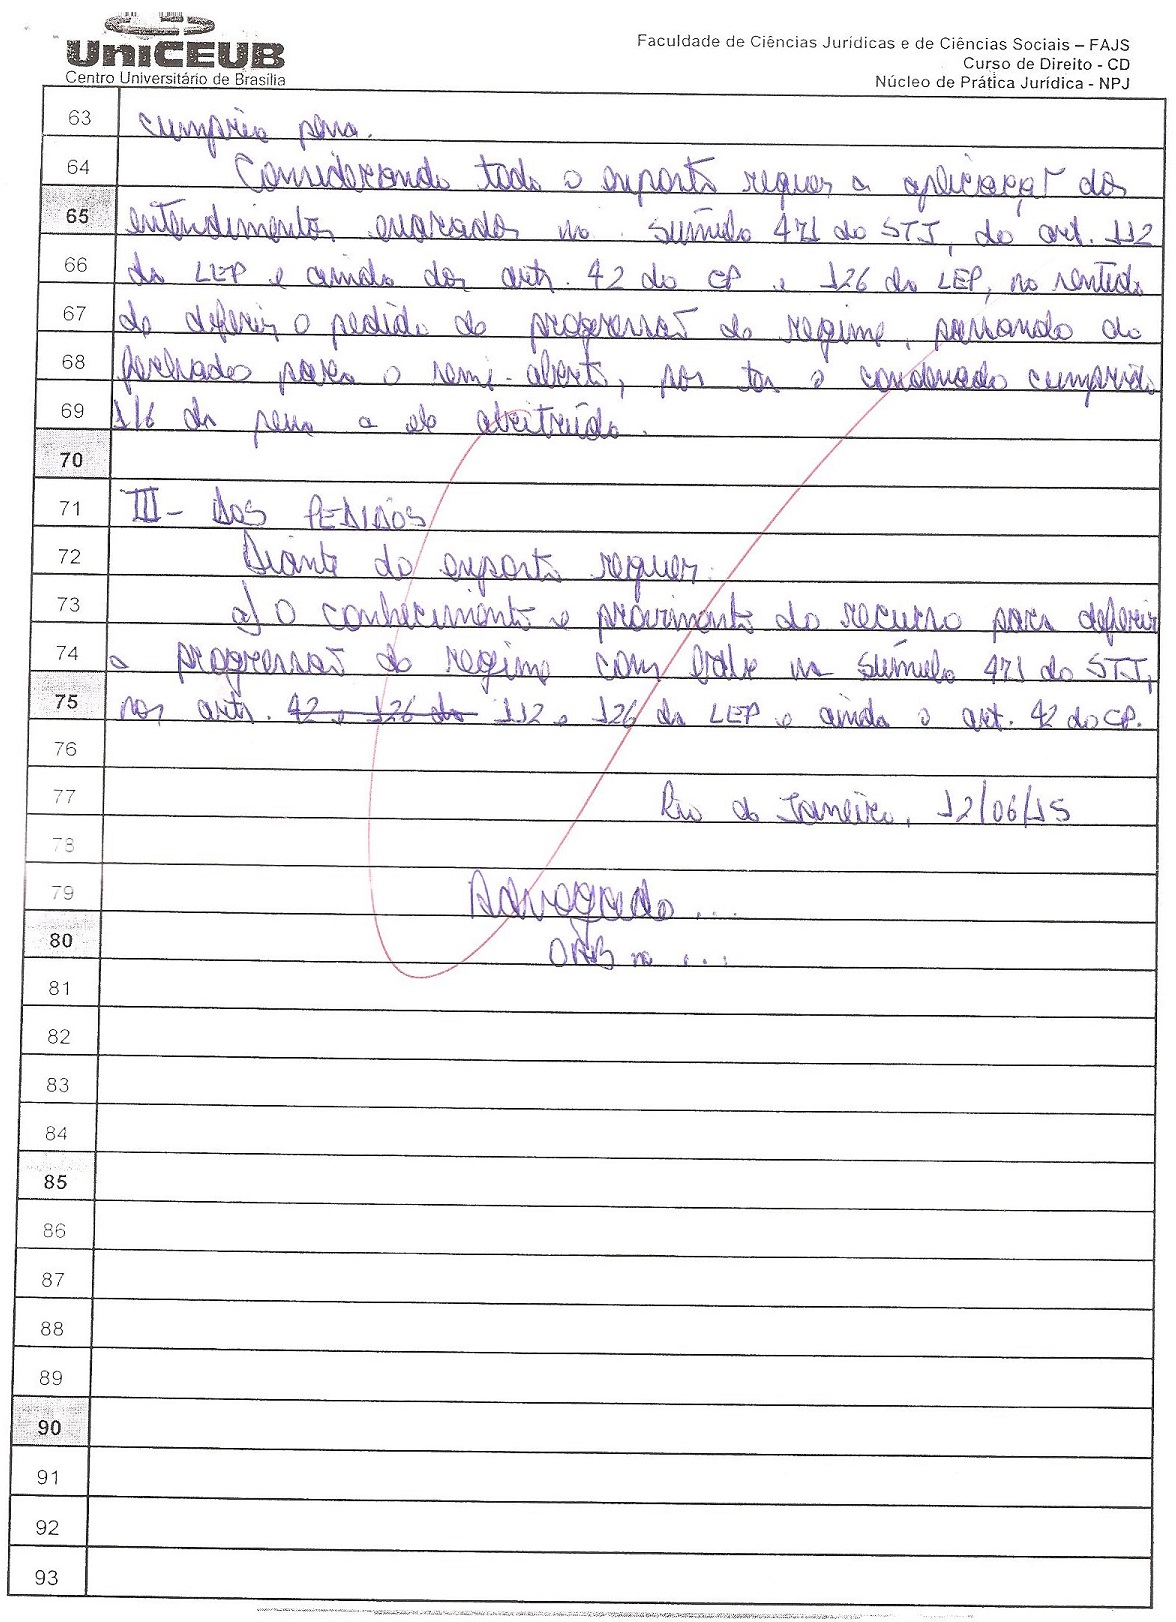 UniCEUB
Centro Universitário de Brasília
Faculdade de Ciências Jurídicas e de Ciências Sociais – FAJS
Curso de Direito - CD
Núcleo de Prática Jurídica - NPJ
63 cumprir pena.
64 Considerando todo o exposto requer a aplicação dos
65 entendimentos exarados na súmula 471 do STJ, do art. 112
66 da LEP e ainda dos arts. 42 do CP e 126 da LEP, no sentido
67 de deferir o pedido de progressão de regime, passando do
68 fechado para o semi-aberto, por ter o condenado cumprido
69 1/6 da pena a ele atribuída.
70
71 III - DOS PEDIDOS
72 Diante do exposto requer:
73 a) O conhecimento e provimento do recurso para deferir
74 a progressão de regime com base na súmula 471 do STJ,
75 nos arts. 42 e 126 da 112 e 126 da LEP e ainda o art. 42 do CP.
76
77 Rio de Janeiro, 12/06/15
78
79 Advogado ...
80 OAB nº ...
81
82
83
84
85
86
87
88
89
90
91
92
93